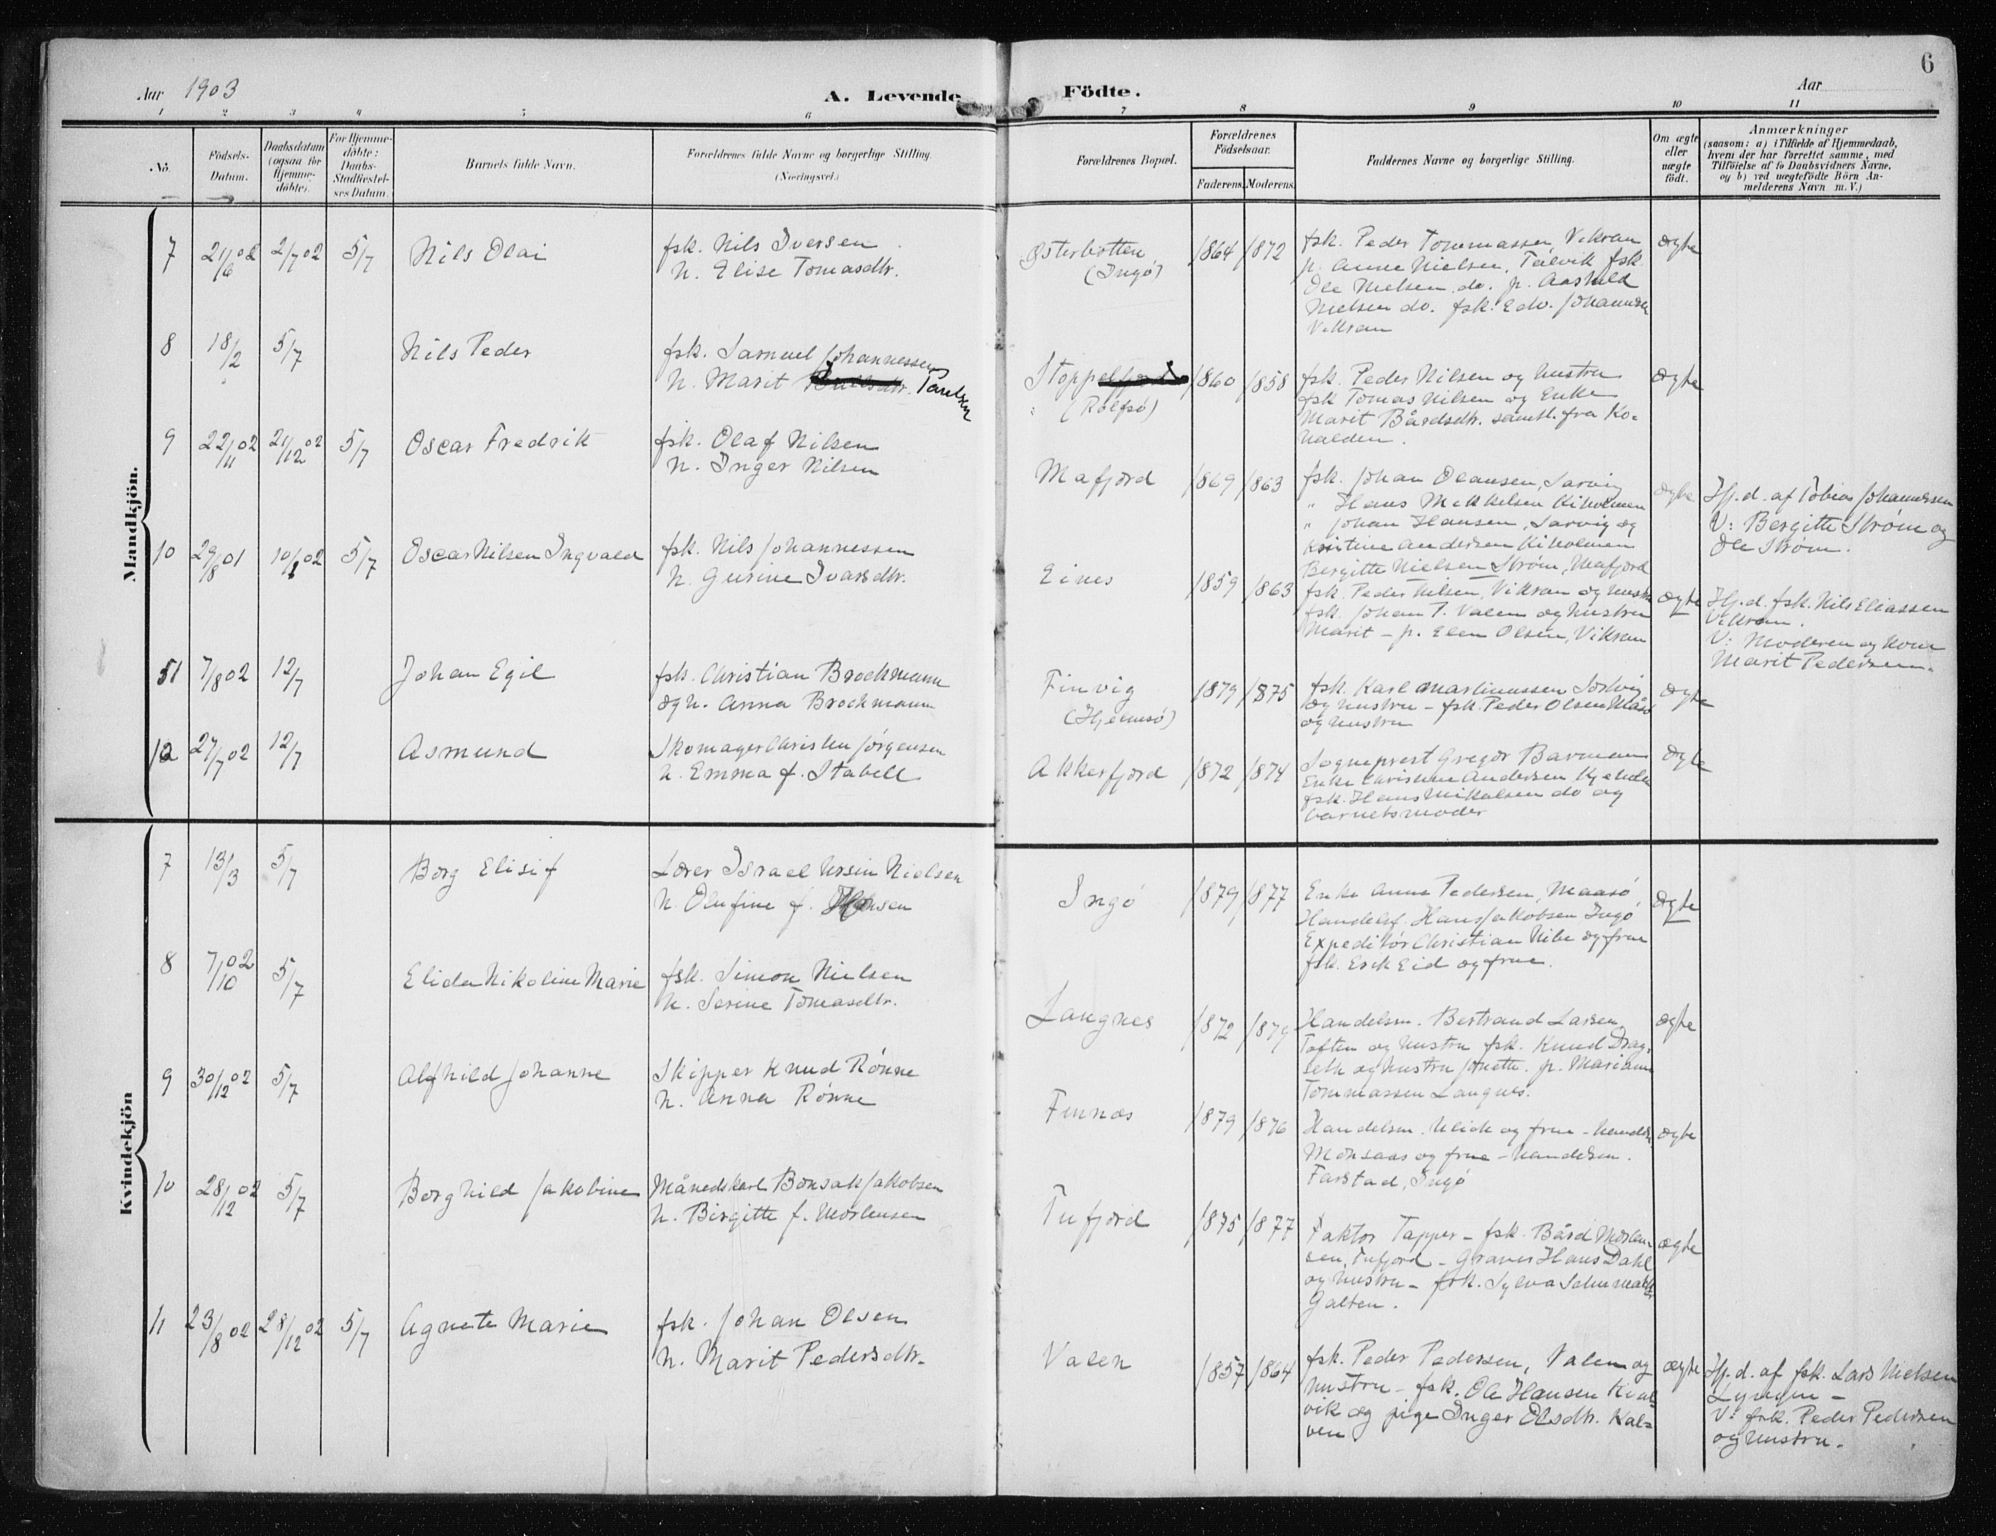 6
Aar 1903
A. Levende
Födte.
Aar
1 2 3 4 5 6 7 8 9 10 11
No.
Födsels-
Datum.
Daabsdatum
(ogsaa for
Hjemme-
döbte).
For Hjemme-
döbte:
Daabs-
Stadfæstel-
ses Datum.
Barnets fulde Navn.
Forældrenes fulde Navne og borgerlige Stilling.
(Næringsvei.)
Forældrenes Bopæl.
Forældrenes
Födselsaar.
Faderens. Moderens.
Faddernes Navne og borgerlige Stilling.
Om ægte
eller
uægte
födt.
Anmærkninger
(saasom: a) i Tilfælde af Hjemmedaab,
hvem der har forrettet samme, med
Tilföielse af to Daabsvidners Navne,
og b) ved uægtefödte Börn An-
melderens Navn m. V.)
Mandkjön.
7 21/6 02 2/7 02 5/7 Nils Olai
fsk. Nils Iversen
h. Elise Tomasdtr.
Østerbotten
(Ingö)
1864 1872
fsk. Peder Tommassen, Vikran
p. Anne Nielsen, Talvik fsk.
Ole Nielsen do. p. Aashild
Nielsen do. fsk. Edv. Johannsen
Vikran
ægte
8 18/2 5/7 Nils Peder
fsk. Samuel Johannessen
h. Marit Paulsen
Stoppel
(Rolfsö)
1860 1858
fsk. Peder Nilsen og hustru
fsk Tomas Nilsen og Enke
Marit Bårdsdtr. samtl. fra Ko-
halden.
ægte
9 22/11 02 21/12 02 5/7 Oscar Fredrik
fsk. Olaf Nilsen
h. Inger Nilsen
Mafjord
1869 1863
fsk. Johan Olausen, Sarvig
" Hans Mikkelsen Kiholmen
" Johan Hansen, Sarvig og
Kristine Andersen Kiholmen
Bergitte Nielsen Strøm, Mafjord
ægte
Hj.d. af Tobias Johannessen
V: Bergitte Strøm og
Ole Strøm.
10 29/8 01 10/ 02 5/7 Oscar Nilsen Ingvald
fsk. Nils Johannessen
h. Gurine Ivarsdtr.
Eines
1859 1863
fsk. Peder Nilsen, Vikran og hustru
fsk. Johan T. Valen og hustru
Marit - p. Elen Olsen, Vikran
ægte
Hj.d. fsk. Nils Eliassen
Vikran.
V: Moderen og kone
Marit Pedersen.
11 7/8 02 12/7 Johan Egil
fsk. Christian Brochmann
og h. Anna Brochmann
Finvig
(Hjelmsö)
1879 1875
fsk. Karl Martinussen Sarvig
og hustru - fsk. Peder Olsen Måsö
og hustru
ægte
12 27/7 02 12/7 Asmund
Skomager Christen Jørgensen
h. Emma f. Stabell
Akkerfjord
1872 1874
Sogneprest Gregor Barman
Enke Christine Andersen, Kjelvik
fsk. Hans Mikalsen do og
barnets moder
ægte
Kvindekjön
7 13/3 5/7 Borg Elisif
Lærer Israel Ursin Nielsen
h. Olufine f. Hansen
Ingö
1879 1877
Enke Anne Pedersen, Maasö
Handelsf. Hans Jakobsen Ingö
Expeditör Christian Ribe og frue
fsk. Erik Eid og frue.
ægte
8 7/10 02 5/7 Elida Nikoline Marie
fsk. Simon Nielsen
h. Serine Tomasdtr.
Langnes
1872 1879
Handelsm. Bertrand Larsen
Toften og hustru fsk. Knud Drag-
seth og hustru Anette. p. Mariane
Tommassen Langnes.
ægte
9 30/12 02 5/7 Alfhild Johanne
Skipper Knud Rønne
h. Anna Rønne
Finnæs
1879 1876
Handelsm. Ulich og frue - handelsm
Monsaas og frue - handelsm.
Farstad, Ingö
ægte
10 28/12 02 5/7 Borghild Jakobine
Månedskarl Bonsak Jakobsen
h. Birgitte f. Mortensen
Tufjord
1875 1877
Faktor Tapper - fsk. Bård Morten-
sen, Tufjord - Graver Hans Dahl
og hustru - fsk. Sylva
Galten.
ægte
11 23/8 02 28/12 02 5/7 Agnete Marie
fsk. Johan Olsen
h. Marit Pedersdtr.
Valen
1857 1864
fsk. Peder Pedersen, Valen og
hustru - fsk. Ole Hansen Kval-
vik og pige Inger Olsdtr. Kal-
ven
ægte
Hj.d. af fsk. Lars Nielsen
Lyngen -
V: fsk. Peder Pedersen
og hustru.